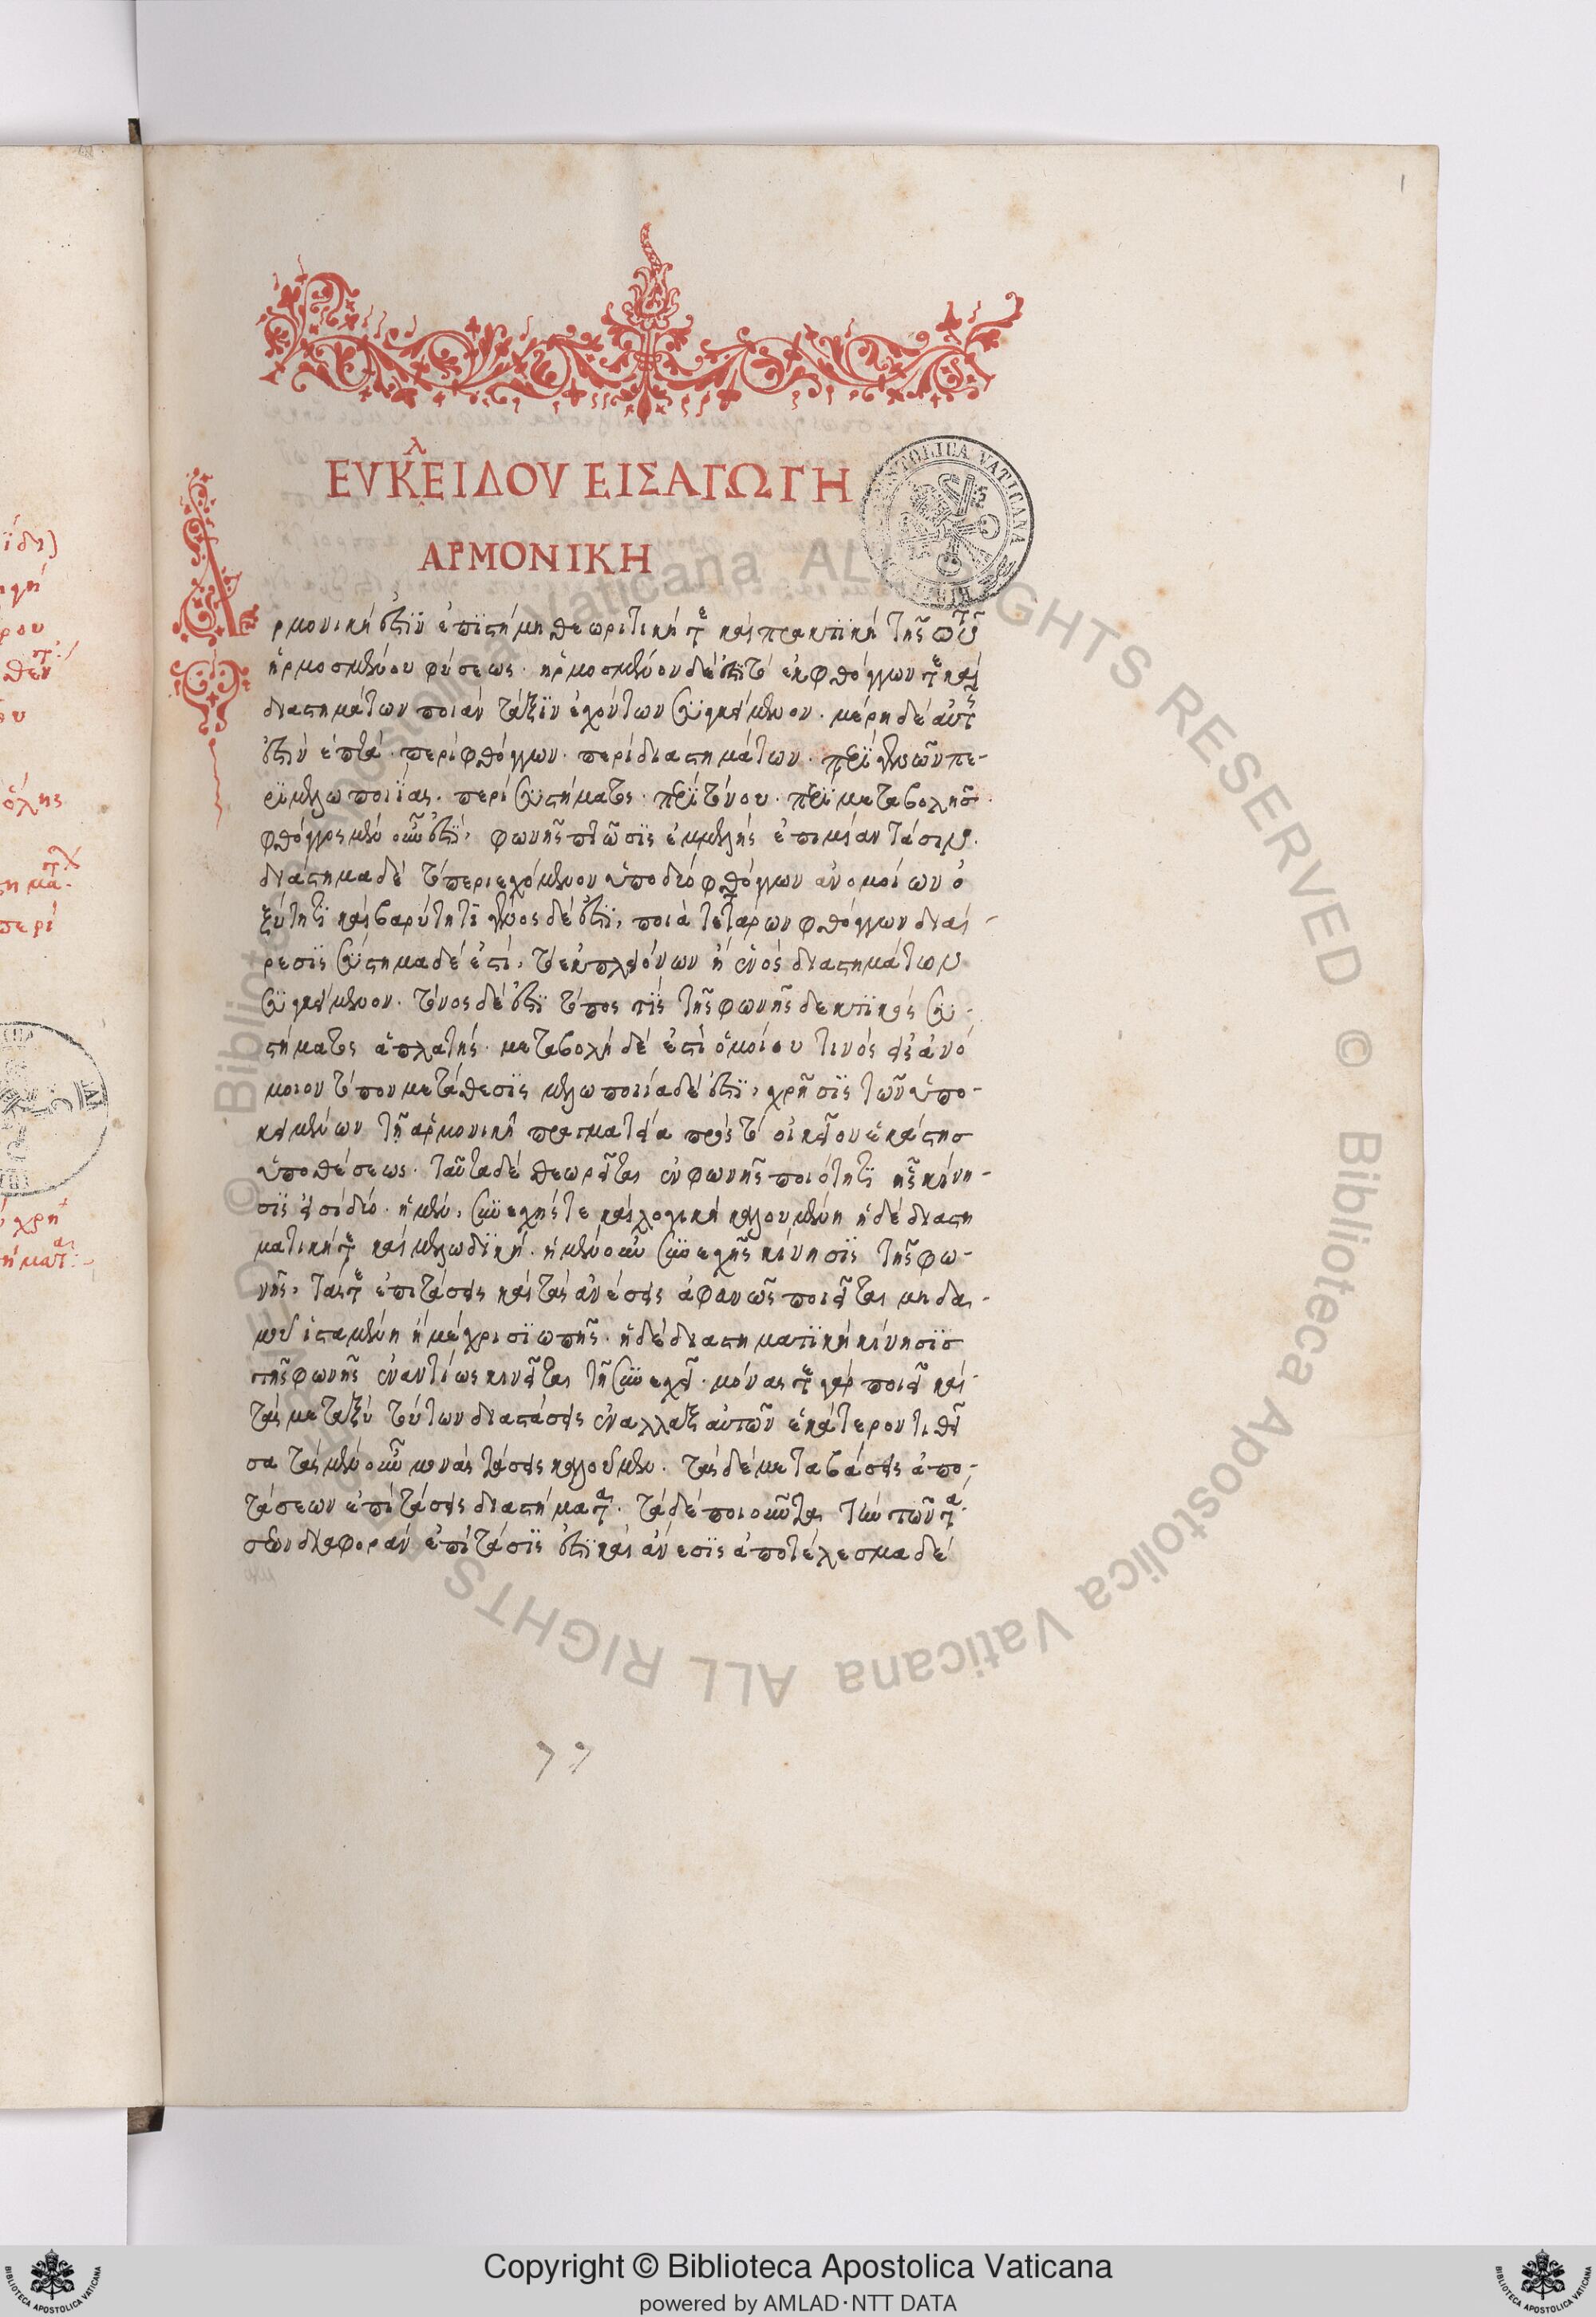 ΕΥΚΛΕΙΔΟΥ ΕΙΣΑΓΩΓΗ
ΑΡΜΟΝΙΚΗ
Αρμονική ἐστὶν ἐπιστήμη θεωριτική τε καὶ πρακτικὴ τῆς τοῦ
ἡρμοσμένου φύσεως· ἡρμοσμένον δέ ἐστι τὸ ἐκ φθόγγων τε καὶ
διαστημάτων ποιὰν τάξιν ἐχόντων συγκείμενον· μέρη δὲ αὐτῆς
ἐστὶν ἑπτά· περὶ φθόγγων· περὶ διαστημάτων· περὶ γενῶν πε-
ρὶ μελωποιίας· περὶ συστήματος· περὶ τόνου· περὶ μεταβολῆς·
φθόγγος μὲν οὖν ἐστί, φωνῆς πτῶσις ἐμμελὴς ἐπὶ μίαν τάσιν·
διάστημα δὲ τὸ περιεχόμενον ὑπὸ δύο φθόγγων ἀνομοίων ὀ
ξύτητι καὶ βαρύτητι γένος δέ ἐστι, ποιὰ τεττάρων φθόγγων διαί-
ρεσις σύστημα δέ ἐστί, τὸ ἐκ πλειόνων ἢ ἑνὸς διαστημάτων
συγκείμενον· τόνος δέ ἐστι τόπος τὶς τῆς φωνῆς δεκτικὸς συ-
στήματος ἀπλατής· μεταβολὴ δέ ἐστὶ ὁμοίου τινὸς εἰς ἀνό
μοιον τόπον μετάθεσις μελωποιία δέ ἐστι, χρῆσις τῶν ὑπο-
κειμένων τῇ ἁρμονικῇ πραγματεία πρὸς τὸ οἰκεῖον ἑκάστης
ὑποθέσεως· ταῦτα δὲ θεωρεῖται ἐν φωνῆς ποιότητι ἧς κινή-
σις εἰσὶ δύο· ἡ μὲν, συνεχής τε καὶ λογικὴ καλουμένη ἡ δὲ διαστη
ματική τε καὶ μελωδική· ἡ μὲν οὖν συνεχὴς κίνησις τῆς φω-
νῆς, τάς τε ἐπιτάσεις καὶ τὰς ἀνέσεις ἀφανῶς ποιεῖται μηδα-
μοῦ ἱσταμένη ἢ μέχρι σιωπῆς· ἡ δὲ διαστηματικὴ κίνησις
τῆς φωνῆς ἐναντίως κινεῖται τῇ συνεχεῖ· μόνας τε γὰρ ποιεῖ καὶ
τὰς μεταξὺ τούτων διαστάσεις ἐναλλὰξ αὐτῶν ἑκάτερον τιθεῖ
σα τὰς μὲν οὖν μονὰς τάσεις καλοῦμεν· τὰς δὲ μεταβάσεις ἀπο-
τάσεων ἐπὶ τάσεις διαστήματα· τὰ δὲ ποιοῦντα τὴν τῶν τα·
σεων διαφορὰν ἐπίτασις ἐστὶ καὶ ἄνεσις ἀποτέλεσμα δὲ
BIBLIOTECA APOSTOLICA VATICANA
© Biblioteca Apostolica Vaticana ALL RIGHTS RESERVED
Copyright © Biblioteca Apostolica Vaticana
powered by AMLAD·NTT DATA